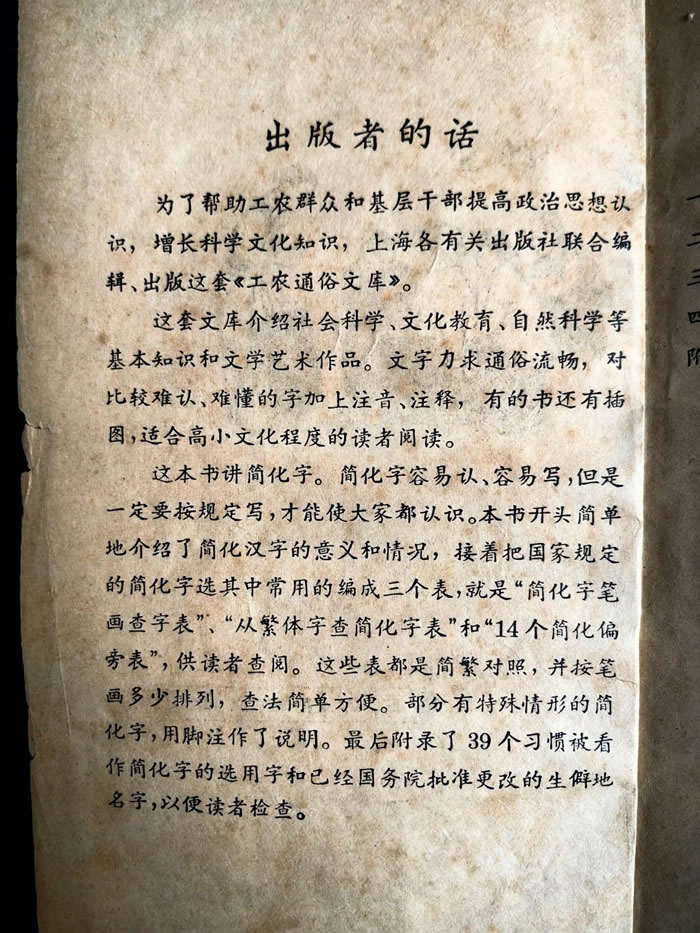 出版者的话
为了帮助工农群众和基层干部提高政治思想认
识，增长科学文化知识，上海各有关出版社联合编
辑、出版这套《工农通俗文库》。
这套文库介绍社会科学、文化教育、自然科学等
基本知识和文学艺术作品。文字力求通俗流畅，对
比较难认、难懂的字加上注音、注释，有的书还有插
图，适合高小文化程度的读者阅读。
这本书讲简化字。简化字容易认、容易写，但是
一定要按规定写，才能使大家都认识。本书开头简单
地介绍了简化汉字的意义和情况，接着把国家规定
的简化字选其中常用的编成三个表，就是“简化字笔
画查字表”、“从繁体字查简化字表”和“14个简化偏
旁表”，供读者查阅。这些表都是简繁对照，并按笔
画多少排列，查法简单方便。部分有特殊情形的简
化字，用脚注作了说明。最后附录了39个习惯被看
作简化字的选用字和已经国务院批准更改的生僻地
名字，以便读者检查。
一
二
三
四
附